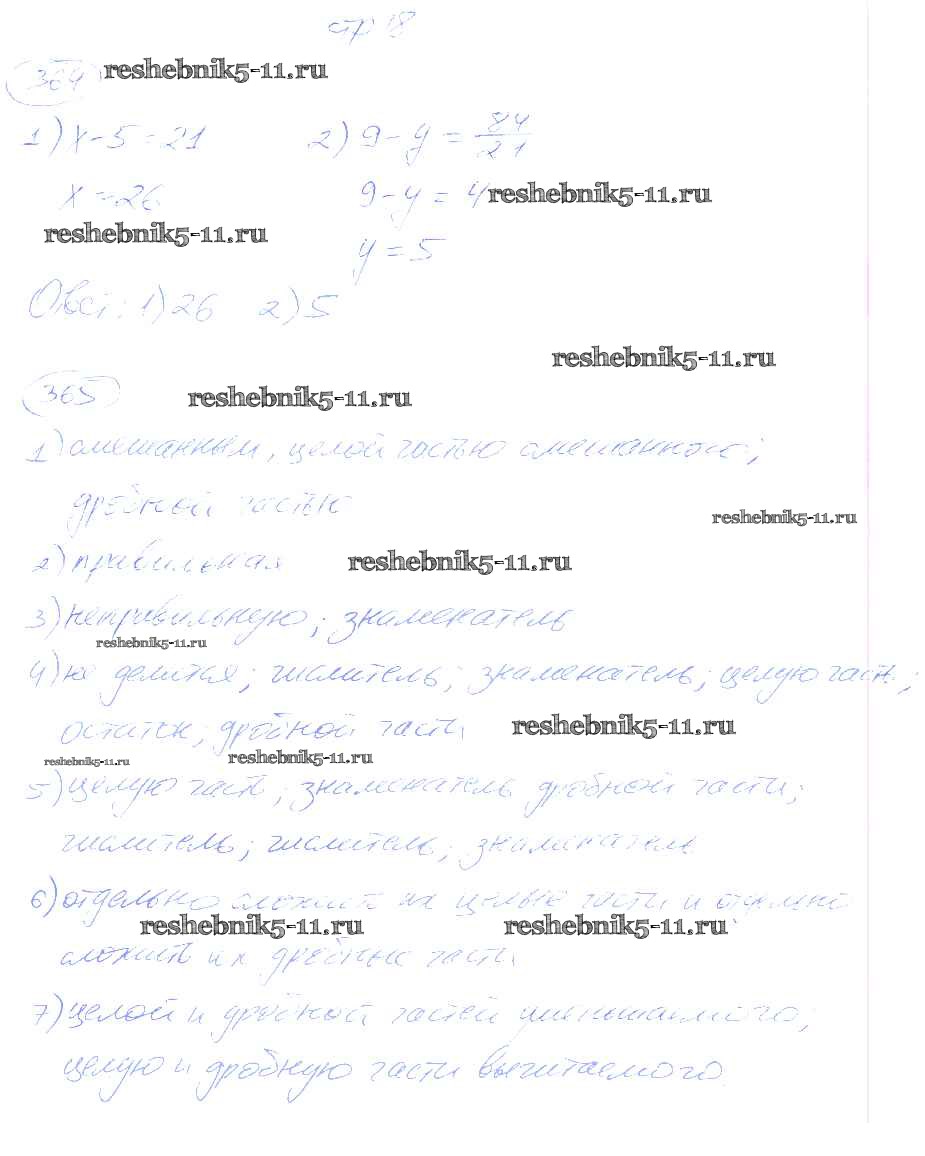 стр 18
364 reshebnik5-11.ru
1) x - 5 = 21 2) 9 - y = 84/21
x = 26 9 - y = 4 reshebnik5-11.ru
reshebnik5-11.ru
y = 5
Ответ: 1) 26 2) 5
reshebnik5-11.ru
365 reshebnik5-11.ru
1) смешанным, целой частью смешанного;
дробной частью
reshebnik5-11.ru
2) правильная reshebnik5-11.ru
3) неправильную; знаменатель
reshebnik5-11.ru
4) не делится; числитель; знаменатель; целую часть;
остаток; дробной части reshebnik5-11.ru
reshebnik5-11.ru reshebnik5-11.ru
5) целую часть; знаменатель дробной части;
числитель; числитель; знаменатель
6) отдельно сложить их целые части и отдельно
reshebnik5-11.ru reshebnik5-11.ru
сложить их дробные части
7) целой и дробной частей уменьшаемого;
целую и дробную части вычитаемого